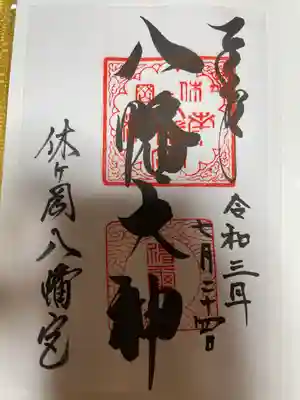 奉拝
八幡大神
令和三年
七月二十四日
休ヶ岡八幡宮